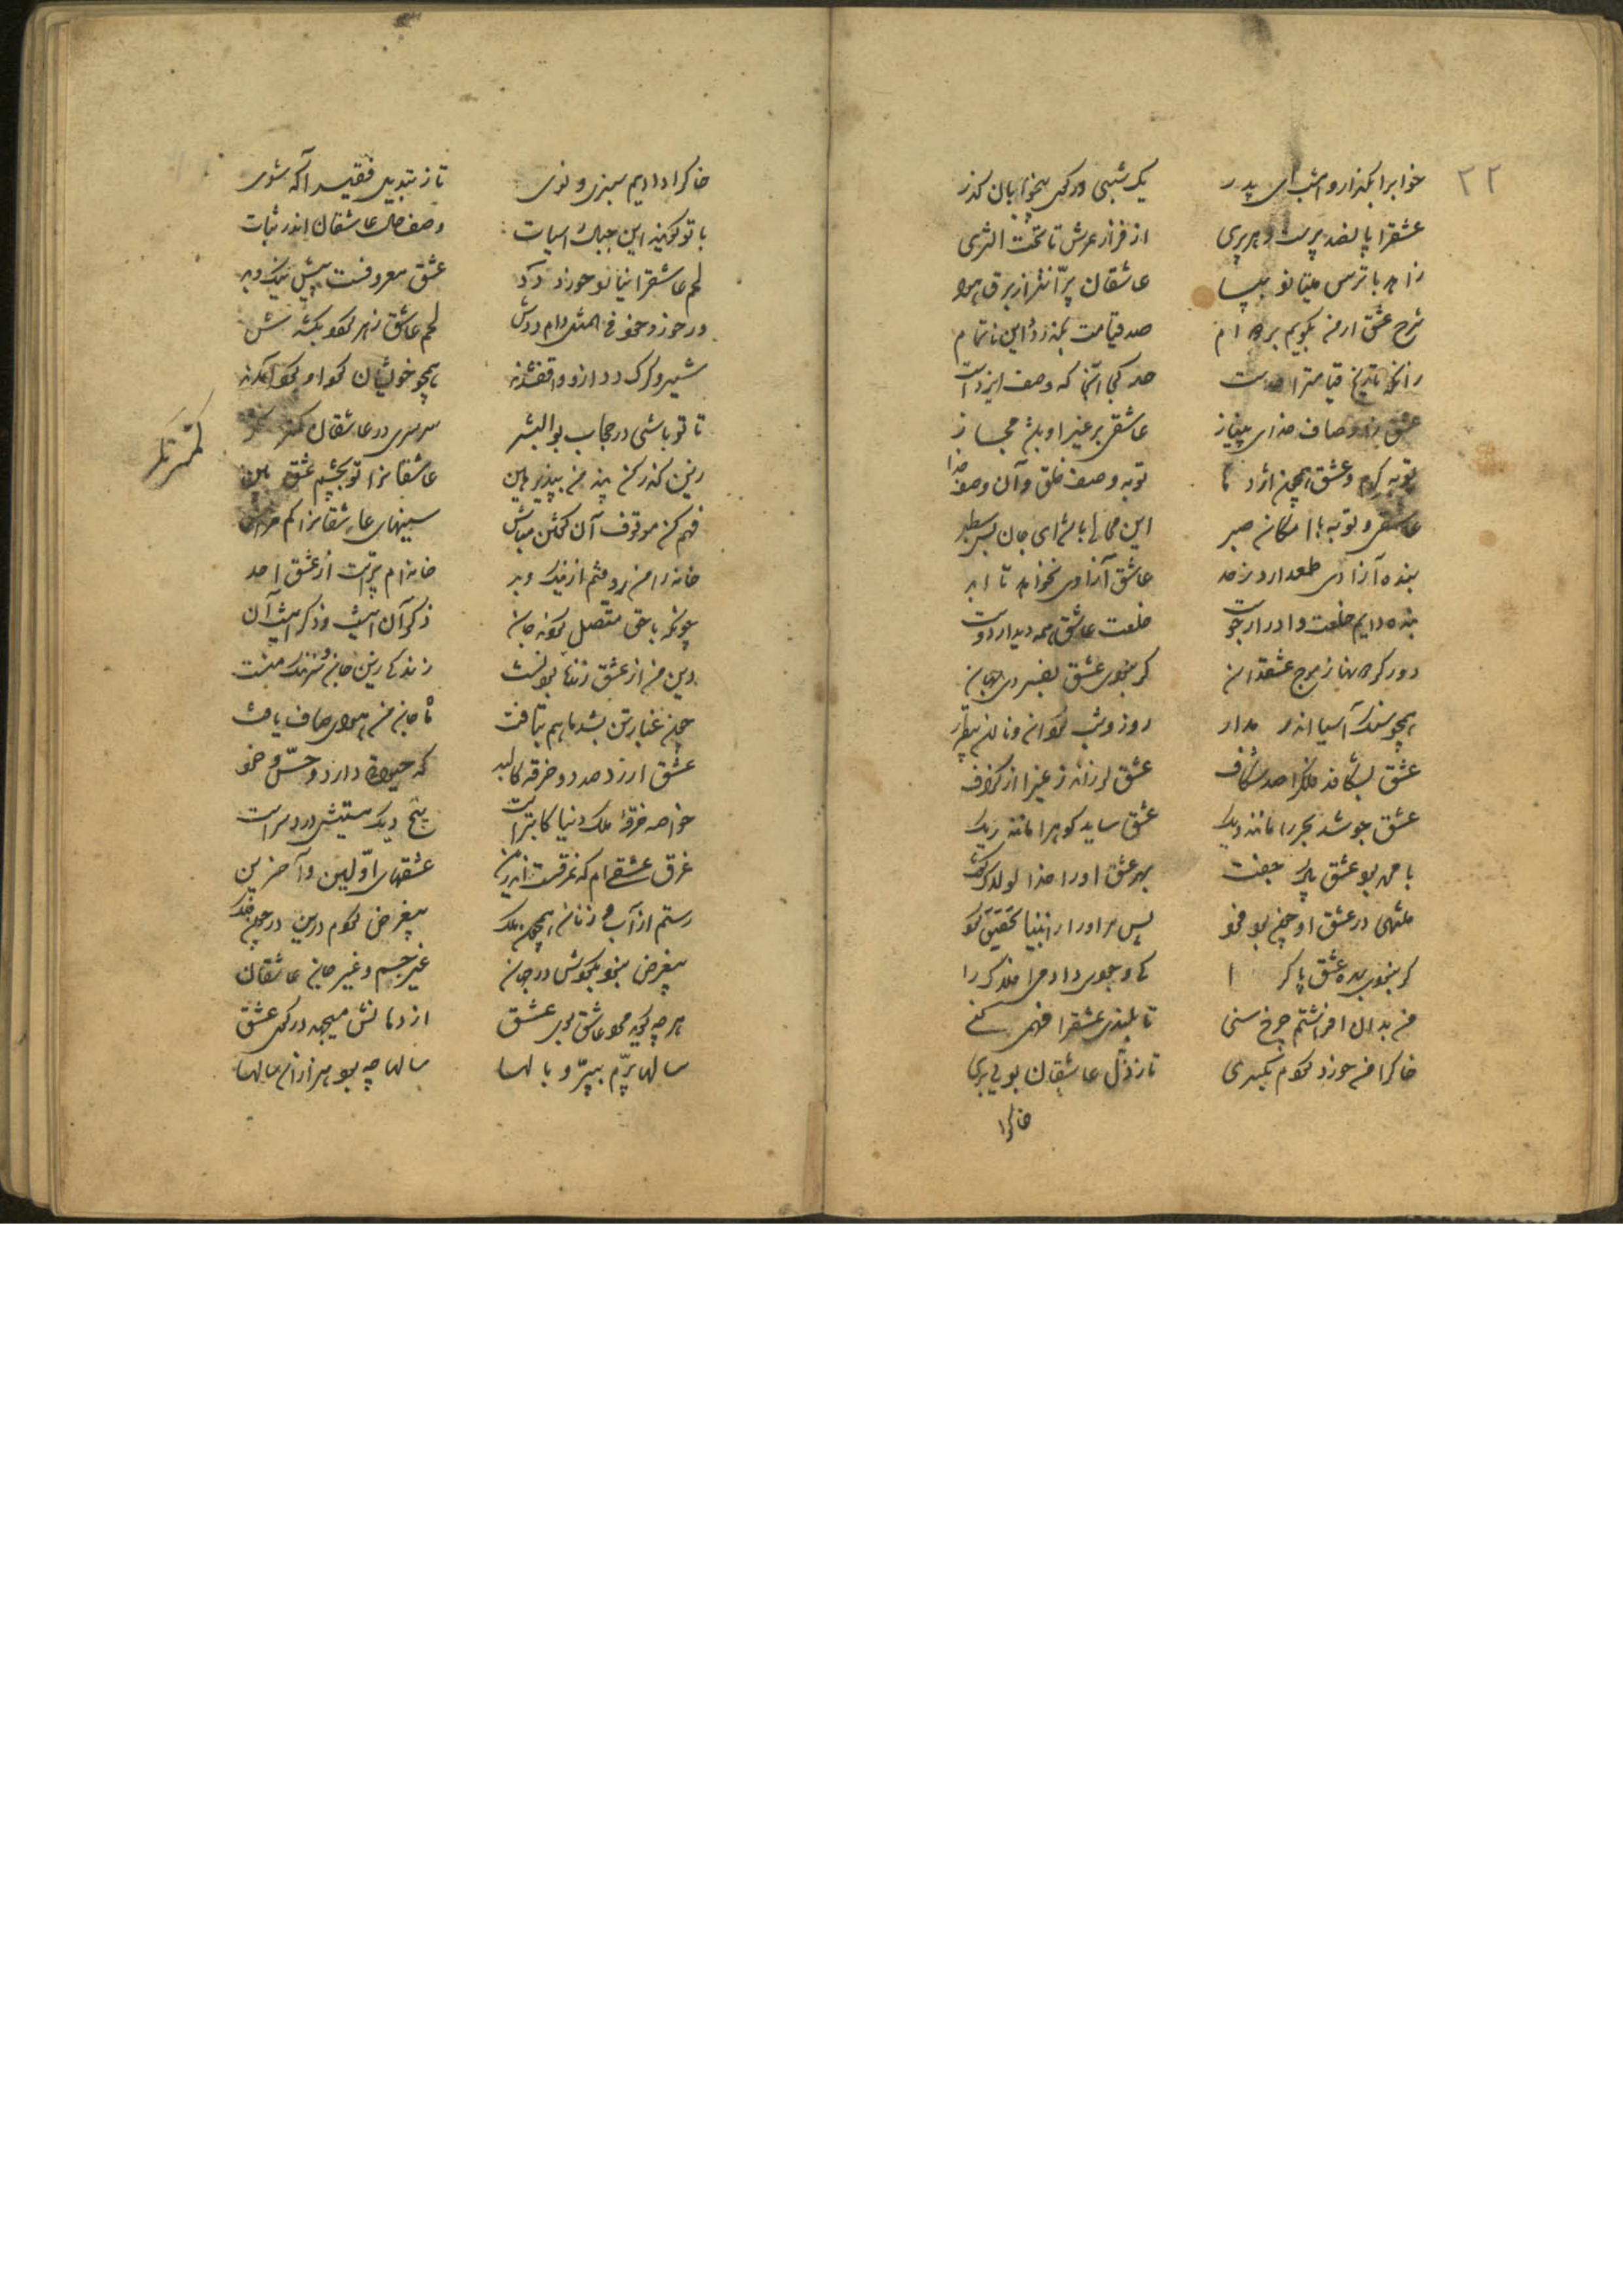 ۲۲
خوابرا بگذار و امشب ای پدر یک شبی در کوی بیخوابان گذر
عشقرا پانصد پرست و هر پری از فراز عرش تا تحت الثری
زاهد باترس میتازد بپا عاشقان پرّانتر از برق و هوا
شرح عشق ار من بگویم بر دوام صد قیامت بگذرد و این ناتمام
زانکه تاریخ قیامترا حدست حد کجا آنجا که وصف ایزدست
عشق ز اوصاف خدای بینیاز عاشقی بر غیر او باشد مجاز
توبه کرم و عشق همچون اژدها توبه وصف خلق و آن وصف خدا
عاشقی و توبه یا امکان صبر این محالی باشد ای جان بس سطبر
بنده آزادی طمع دارد ز جد عاشق آزادی نخواهد تا ابد
بنده دایم خلعت و ادرار جوست خلعت عاشق همه دیدار دوست
دور گردونها ز موج عشق دان گر نبودی عشق بفسردی جهان
همچو سنک آسیا اندر مدار روز و شب گردان و نالان بیقرار
عشق بشکافد فلکرا صد شکاف عشق لرزاند زمینرا از گزاف
عشق جوشد بحر را مانند دیک عشق ساید کوه را مانند ریک
با محمد بود عشق پاک جفت بهر عشق او را خدا لولاک گفت
منتهی در عشق او چون بود فرد پس مر او را ز انبیا تخصیص کرد
گر نبودی بهر عشق پاک را کی وجودی دادمی افلاک را
من بدان افراشتم چرخ سنی تا بلندی عشقرا فهمی کنی
خاکرا من خوار کردم یکسری تا ز ذلّ عاشقان بویی بری
خاکرا
خاکرا دادیم سبزی و نوی تا ز تبدیل فقیر آگه شوی
با تو گویند این جبال راسیات وصف حال عاشقان اندر ثبات
لحم عاشقرا نیارد خورد دد عشق معروفست پیش نیک و بد
ور خورد خود فی المثل دام و ددش لحم عاشق زهر گردد بکشدش
شیر و گرک و دد ازو واقف شدند همچو خویشان گرد او گرد آمدند
تا تو باشی در حجاب بوالبشر سرسری در عاشقان کمتر نگر
کمتر نگر
زین گذر کن پند من بپذیر هین عاشقانرا تو بچشم عشق بین
فهم کن موقوف آن گفتن مباش سینهای عاشقانرا کم خراش
خانه را من روفتم از نیک و بد خانه ام پرّست از عشق احد
چونکه با حق متصل گردید جان ذکر آن اینست و ذکر اینست آن
دین من از عشق زنده بودنست زندگی زین جان و سر ننک منست
چون غبار تن بشد ماهم بتافت ماه جان من هوای صاف یافت
عشق ارزد صد دو خرقه کالبد که حیوتی دارد و حسّ و خرد
خواصه خرقه ملک دنیا کابترست پنج دیک مستیش درد سرست
غرق عشقی ام که غرقست اندرین عشقهای اوّلین و آخرین
رستم از آب و ز نان همچون ملک بیغرض گردم درین در چون فلک
بیغرض نبود بگردش در جهان غیر جسم و غیر جان عاشقان
هر چه گوید مرد عاشق بوی عشق از دهانش میجهد در کوی عشق
سالها پرّم بپرّ و بالها سالها چه بود هزاران سالها